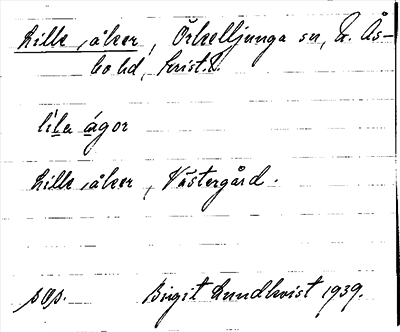 Lille, åker, Örkelljunga sn, N. Ås-
bo hd, Krist. l.
lila ågor
Lille, åker, Västergård.
sOp. Birgit Lundkvist 1939.